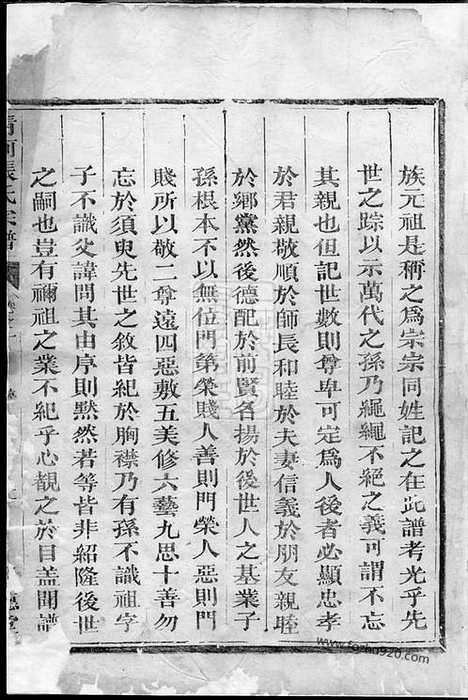 族元祖是稱之爲宗宗同姓記之在此譜考光乎先
世之踪以示萬代之孫乃繩繩不絕之義可謂不忘
其親也但記世數則尊卑可定爲人後者必顯忠孝
於君親敬順於師長和睦於夫妻信義於朋友親睦
於鄉黨然後德配於前賢名揚於後世人之基業子
孫根本不以無位門第榮賤人善則門榮人惡則門
賤所以敬二尊遠四惡敷五美修六藝九思十善勿
忘於須臾先世之敘皆紀於胸襟乃有孫不識祖字
子不識父諱問其由序則默然若等皆非紹隆後世
之嗣也豈有禰祖之業不紀乎心覩之於目盖開譜
清河張氏宗譜
www.fozhu920.com